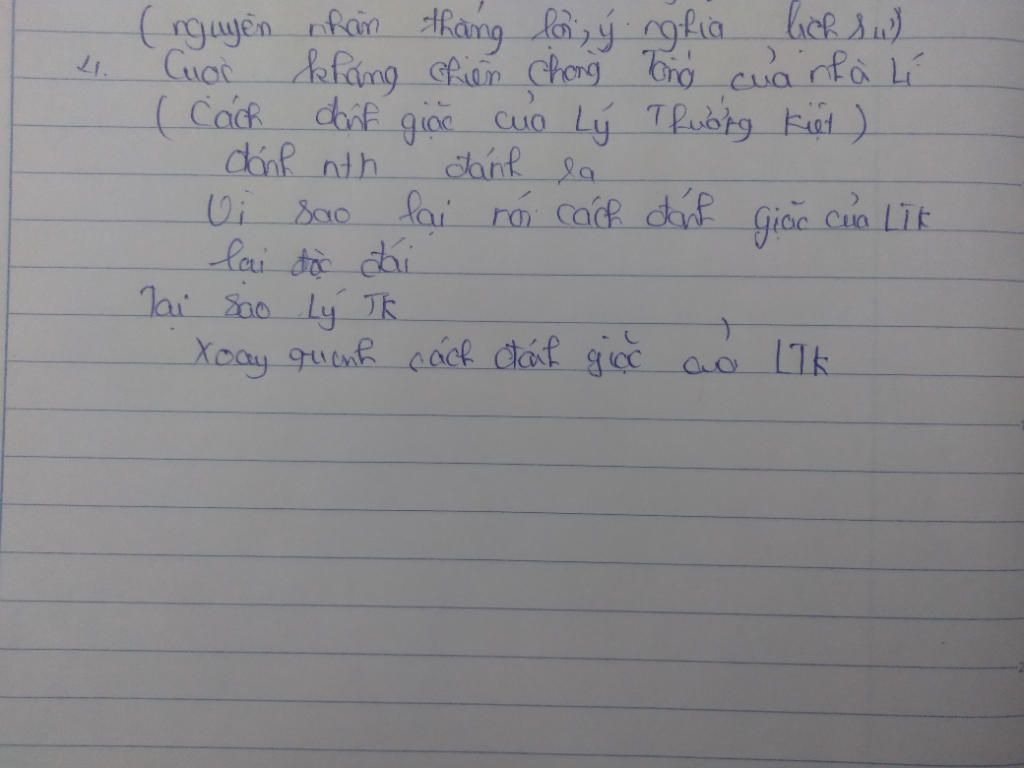 (nguyên nhân thắng lợi, ý nghĩa lịch sử)
4. Cuộc kháng chiến chống Tống của nhà Lí
(Cách đánh giặc của Lý Thường Kiệt)
đánh nth đánh sa
Vì sao lại nói cách đánh giặc của LTK
lại độc đái
Tại sao Lý TK
Xoay quanh cách đánh giặc của LTK